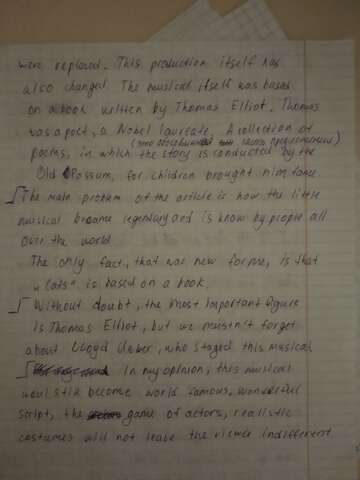 were replaced. This production itself has
also changed. The musical itself was based
on a book written by Thomas Elliot. Thomas
was a poet, a Nobel laureate. A collection of
(это
poems, in which the story is conducted by the
Old Possum, for children brought him fame
The main problem of the article is how the little
musical became legendary and is know by people all
over the world
The only fact, that was new for me, is that
"Cats" is based on a book.
Without doubt, the most important figure
is Thomas Elliot, but we mustn't forget
about Lloyd Ueber, who staged this musical
In my opinion, this musical
would still become world famous, wonderful
script, the game of actors, realistic
costumes will not leave the viewer indifferent.